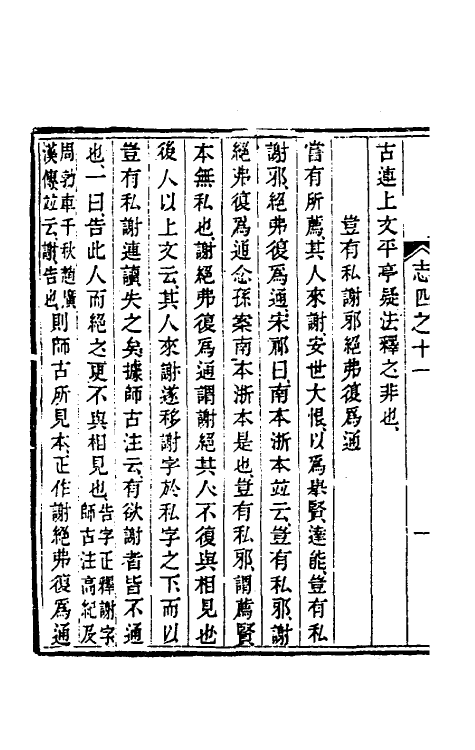 志四之十一
一
古連上文平亭疑法釋之非也
豈有私謝邪絕弗復爲通
嘗有所薦其人來謝安世大恨以爲舉賢達能豈有私
謝邪絕弗復爲通宋祁曰南本浙本竝云豈有私邪謝
絕弗復爲通念孫案南本浙本是也豈有私邪謂薦賢
本無私也謝絕弗復爲通謂謝絕其人不復與相見也
後人以上文云其人來謝遂移謝字於私字之下而以
豈有私謝連讀失之矣據師古注云有欲謝者皆不通
也一曰告此人而絕之更不與相見也告字正釋謝字
師古注高紀及
周勃車千秋趙廣
漢傳竝云謝告也則師古所見本正作謝絕弗復爲通